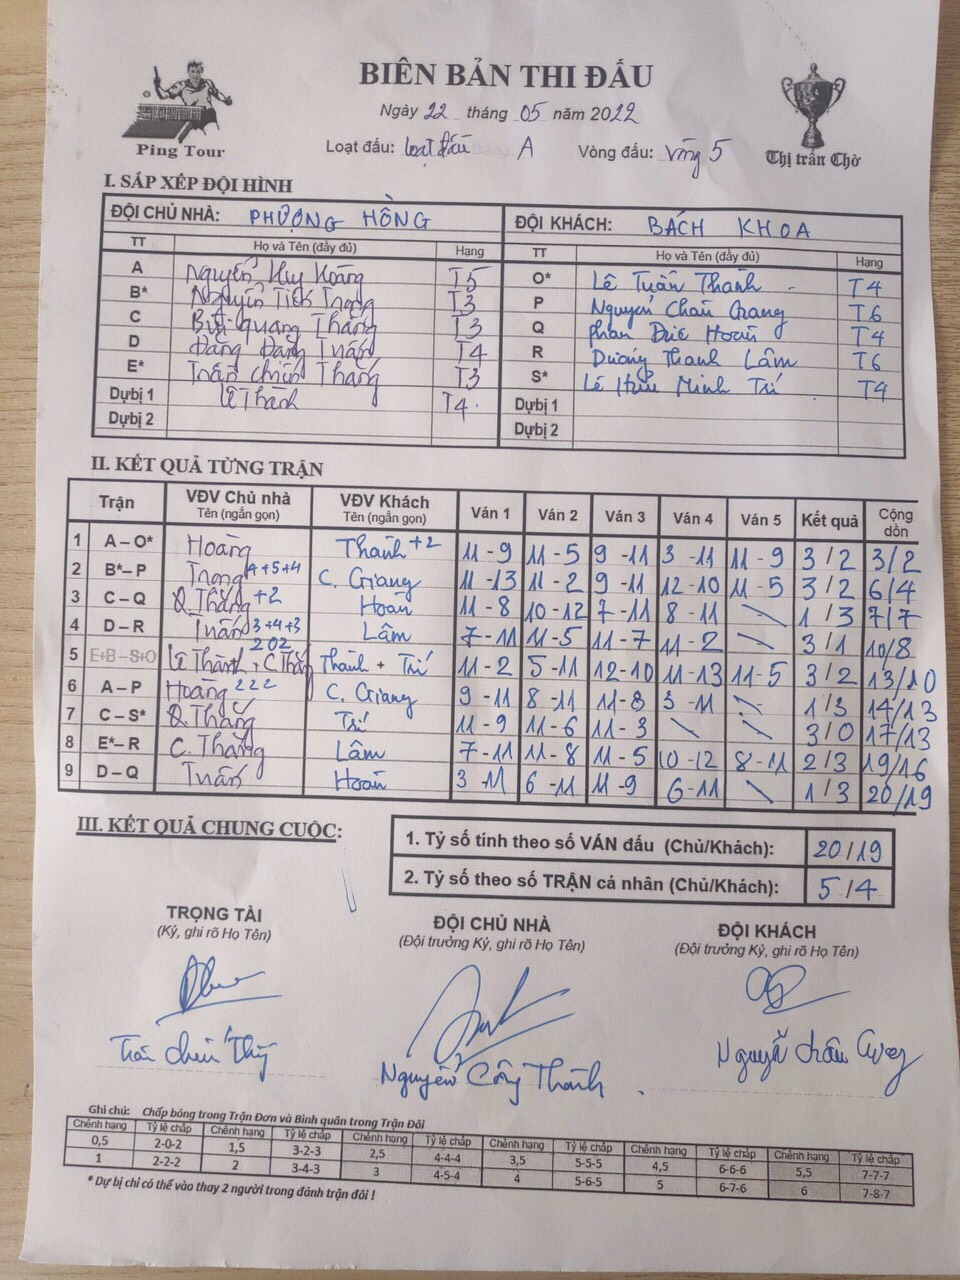 BIÊN BẢN THI ĐẤU
Ngày 22 tháng 05 năm 2022
Ping Tour
Loạt đấu: Loạt đấu A Vòng đấu: Vòng 5
Thị trấn Chờ
I. SẮP XẾP ĐỘI HÌNH
ĐỘI CHỦ NHÀ: PHƯỢNG HỒNG ĐỘI KHÁCH: BÁCH KHOA
TT Họ và Tên (đầy đủ) Hạng TT Họ và Tên (đầy đủ) Hạng
A Nguyễn Huy Hoàng T5 O* Lê Tuấn Thanh T4
B* Nguyễn Tiến Trọng T3 P Nguyễn Châu Giang T6
C Bùi Quang Thắng T3 Q Phan Đức Hoàn T4
D Đặng Đăng Tuấn T4 R Dương Thanh Lâm T6
E* Trần Chiến Thắng T3 S* Lê Hữu Minh Trí T4
Dự bị 1 Lê Thành T4 Dự bị 1
Dự bị 2 Dự bị 2
II. KẾT QUẢ TỪNG TRẬN
Trận VĐV Chủ nhà Tên (ngắn gọn) VĐV Khách Tên (ngắn gọn) Ván 1 Ván 2 Ván 3 Ván 4 Ván 5 Kết quả Cộng dồn
1 A – O* Hoàng Thanh +2 11 - 9 11 - 5 9 - 11 3 - 11 11 - 9 3 / 2 3/2
2 B* – P Trọng 4+5+4 C. Giang 11 - 13 11 - 2 9 - 11 12 - 10 11 - 5 3 / 2 6/4
3 C – Q Q. Thắng +2 Hoàn 11 - 8 10 - 12 7 - 11 8 - 11 \ 1 / 3 7/7
4 D – R Tuấn 3+4+3 Lâm 7 - 11 11 - 5 11 - 7 11 - 2 \ 3 / 1 10/8
5 E+B – S+O Lê Thành + C Thắng 202 Thanh + Trí 11 - 2 5 - 11 12 - 10 11 - 13 11 - 5 3 / 2 13/10
6 A – P Hoàng 222 C. Giang 9 - 11 8 - 11 11 - 8 3 - 11 \ 1 / 3 14/13
7 C – S* Q. Thắng Trí 11 - 9 11 - 6 11 - 3 \ \ 3 / 0 17/13
8 E* – R C. Thắng Lâm 7 - 11 11 - 8 11 - 5 10 - 12 8 - 11 2 / 3 19/16
9 D – Q Tuấn Hoàn 3 - 11 6 - 11 11 - 9 6 - 11 \ 1 / 3 20/19
III. KẾT QUẢ CHUNG CUỘC:
1. Tỷ số tính theo số VÁN đấu (Chủ/Khách): 20/19
2. Tỷ số theo số TRẬN cá nhân (Chủ/Khách): 5/4
TRỌNG TÀI ĐỘI CHỦ NHÀ ĐỘI KHÁCH
(Ký, ghi rõ Họ Tên) (Đội trưởng Ký, ghi rõ Họ Tên) (Đội trưởng Ký, ghi rõ Họ Tên)
Nguyễn Công Thành
Ghi chú: Chấp bóng trong Trận Đơn và Bình quân trong Trận Đôi
Chênh hạng Tỷ lệ chấp Chênh hạng Tỷ lệ chấp Chênh hạng Tỷ lệ chấp Chênh hạng Tỷ lệ chấp Chênh hạng Tỷ lệ chấp Chênh hạng Tỷ lệ chấp
0,5 2-0-2 1,5 3-2-3 2,5 4-4-4 3,5 5-5-5 4,5 6-6-6 5,5 7-7-7
1 2-2-2 2 3-4-3 3 4-5-4 4 5-6-5 5 6-7-6 6 7-8-7
* Dự bị chỉ có thể vào thay 2 người trong đánh trận đôi !